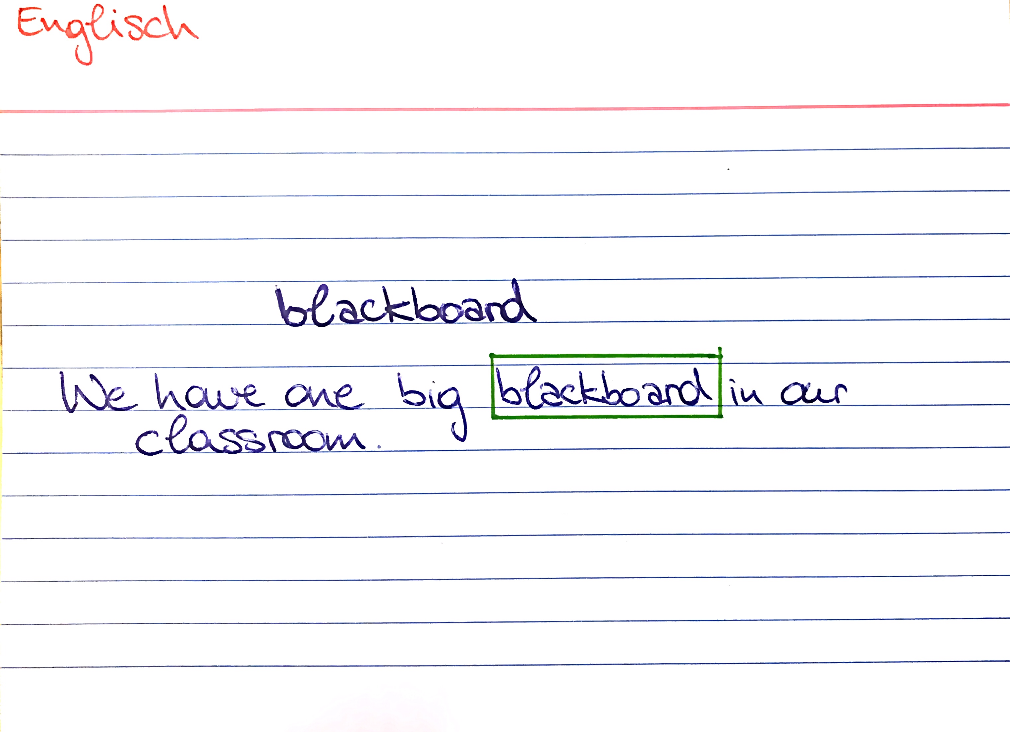 Englisch
blackboard
We have one big blackboard in our
classroom.